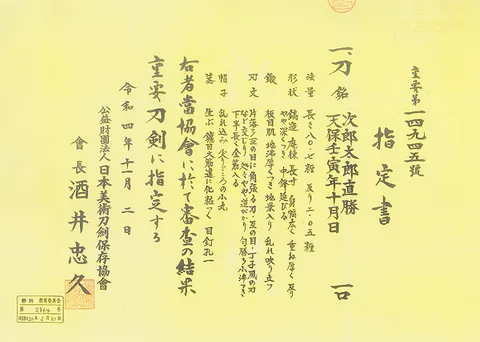 重要第一四九四五號
指定書
一、刀 銘 次郎太郎直勝
天保壬寅年十月日 一口
法量 長さ八〇・七糎 反り二・〇五糎
形状 鎬造 庵棟 長寸 身幅広く 重ね厚く 反り
やや深くつき 中鋒延びる
鍛 板目肌 地沸厚くつき 地景入り 乱れ映り立つ
刃文 片落ち互の目に角張る刃・互の目・丁子風の刃
など交じり 処々やや逆がかり 匂勝ち小沸つき
下半長く金筋入る
帽子 乱れ込み 尖りごころの小丸
茎 生ぶ 鑢目大筋違に化粧つく 目釘孔一
右者當協會に於て審査の結果
重要刀剣に指定する
令和四年十一月二日
公益財團法人日本美術刀剣保存協會
會長 酒井忠久
教育委員会
第 号